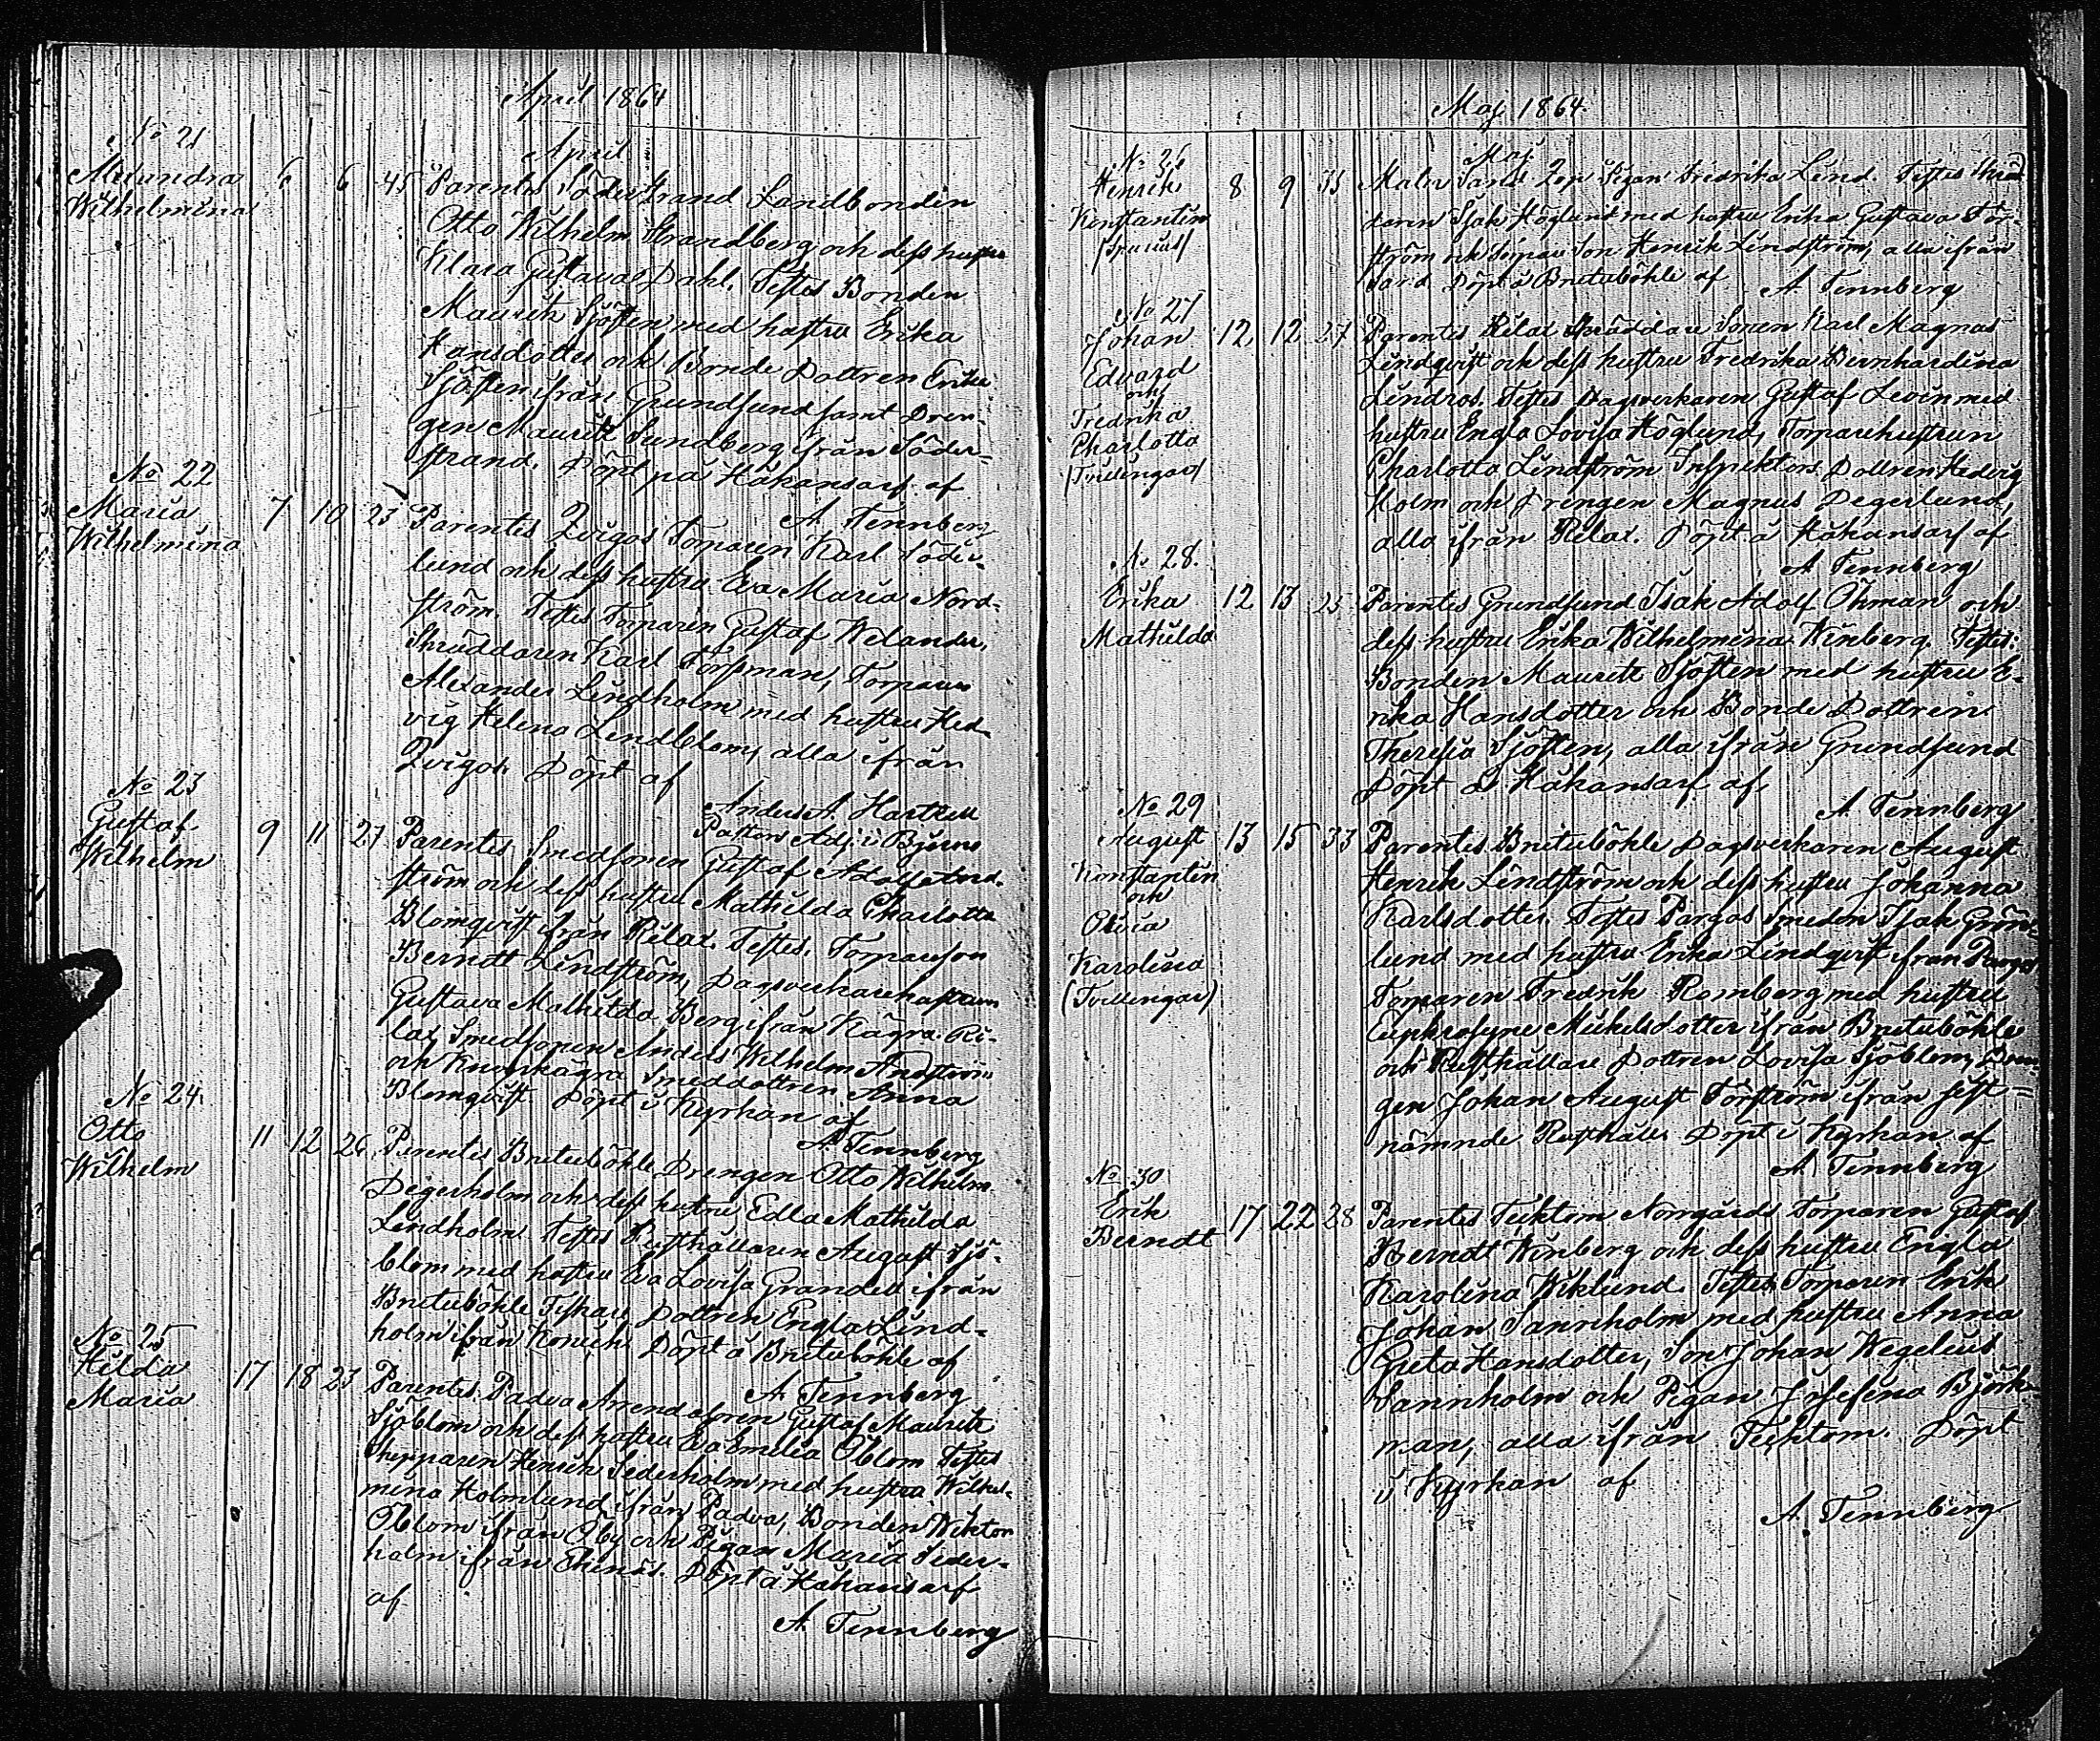 April 1864
April
No 21
Alexandra 6 6 45 Parentes Söderstrand Landbonden
Wilhelmina
Otto Wilhelm Strandberg och dess hustru
Klara Gustava Dahl. Testes Bonden
Maurits Sjösten med hustru Erika
Hansdotter och Bonde Dottren Erika
Sjösten ifrån Grundsund samt Dren-
gen Maurits Sundberg ifrån Söder-
strand. Döpt på Håkansarf af
A. Tennberg
No 22
Maria 7 10 25 Parentes Torparen Karl Söder-
Wilhelmina
lund och dess hustru Eva Maria Nord-
ström. Testes Torparen Gustaf Welander,
Skräddaren Karl Forsman, Torparen
Alexander Lindholm med hustru Hed-
vig Helena Lindblom, alla ifrån
Döpt af
Anders A.
Pastors Adj. i Bjerno
No 23
Gustaf 9 11 27 Parentes Smedsonen Gustaf Adolf
Wilhelm
ström och dess hustru Mathilda Charlotta
Blomqvist ifrån Rilax. Testes. Torpareson
Berndt Lindström, Dagsverkarehustrun
Gustava Mathilda Berg ifrån Kägra Ri-
lax Smedsonen Anders Wilhelm
och Smeddottren Anna
Blomqvist Döpt i Kyrkan af
A. Tennberg
No 24.
Otto 11 12 26 Parentes Bruteböhle Drengen Otto Wilhelm
Wilhelm
Degerholm och dess hustru Edla Mathilda
Lindholm Testes Rusthållaren August Sjö-
blom med hustru Eva Lovisa Grandell ifrån
Bruteböhle Fiskare Dottren Engla Lind-
holm ifrån Döpt å Bruteböhle af
A. Tennberg
No 25
Hilda 17 18 23 Parentes. Padva Gustaf Maurits
Maria
Sjöblom och dess hustru Eva Emilia Öblom Testes
Skepparen Henrik Sederholm med hustru Wilhel-
mina Holmlund ifrån Padva, Bonden Wiktor
Öblom ifrån Öby och Pigan Maria Seder-
holm ifrån Döpt å Håkansarf
af
A. Tennberg
Maj 1864.
Maj.
No 26
Henrik 8 9 33 Pigan Fredrika Lind. Testes Skräd-
Konstantin
(spurius)
daren Isak Höglund med hustru Erika Gustava För-
ström och Torpare Son Henrik Lindström, alla ifrån
Döpt å Bruteböhle af A. Tennberg
No 27
Johan 12 12 27 Parentes Rilax Skräddare Sonen Karl Magnus
Edvard
och
Fredrika
Charlotta
(Tvillingar)
Lindqvist och dess hustru Fredrika Bernhardina
Lindros. Testes Dagsverkaren Gustaf Levin med
hustru Engla Lovisa Höglund, Torparehustrun
Charlotta Lindström Inspektors Dottren Hedvig
Holm och Drengen Magnus Degerlund,
alla ifrån Rilax. Döpt å Håkansarf af
A Tennberg
No 28.
Erika 12 13 25 Parentes Grundsund Isak Adolf Öhman och
Mathilda
dess hustru Erika Wilhelmina Winberg. Testes:
Bonden Maurits Sjösten med hustru E-
rika Hansdotter och Bonde Dottren
Theresia Sjösten, alla ifrån Grundsund
Döpt å Håkansarf af
A Tennberg
No 29
August 13 15 33 Parentes Bruteböhle Dagsverkaren August
Konstantin
och
Olivia
Karolina
(Tvillingar)
Henrik Lindström och dess hustru Johanna
Karlsdotter Testes Pargas Smeden Isak Grön-
lund med hustru Erika Lindqvist ifrån Pargas
Torparen Fredrik Romberg med hustru
Euphrosyne Mikelsdotter ifrån Bruteböhle
och Rusthållare Dottren Lovisa Sjöblom, Dren-
gen Johan August Förström ifrån sist-
nämnde Rusthåll. Döpt i Kyrkan af
A Tennberg
No 30
Erik 17 22 28 Parentes Tecktom Norrgårds Torparen Gustaf
Berndt
Berndt Winberg och dess hustru Engla
Karolina Wiklund. Testes Torparen Erik
Johan Sannholm med hustru Anna
Greta Hansdotter, Son Johan Wegelius
Sannholm och Pigan Josefina Björk-
man, alla ifrån Tecktom. Döpt
i Kyrkan af
A. Tennberg